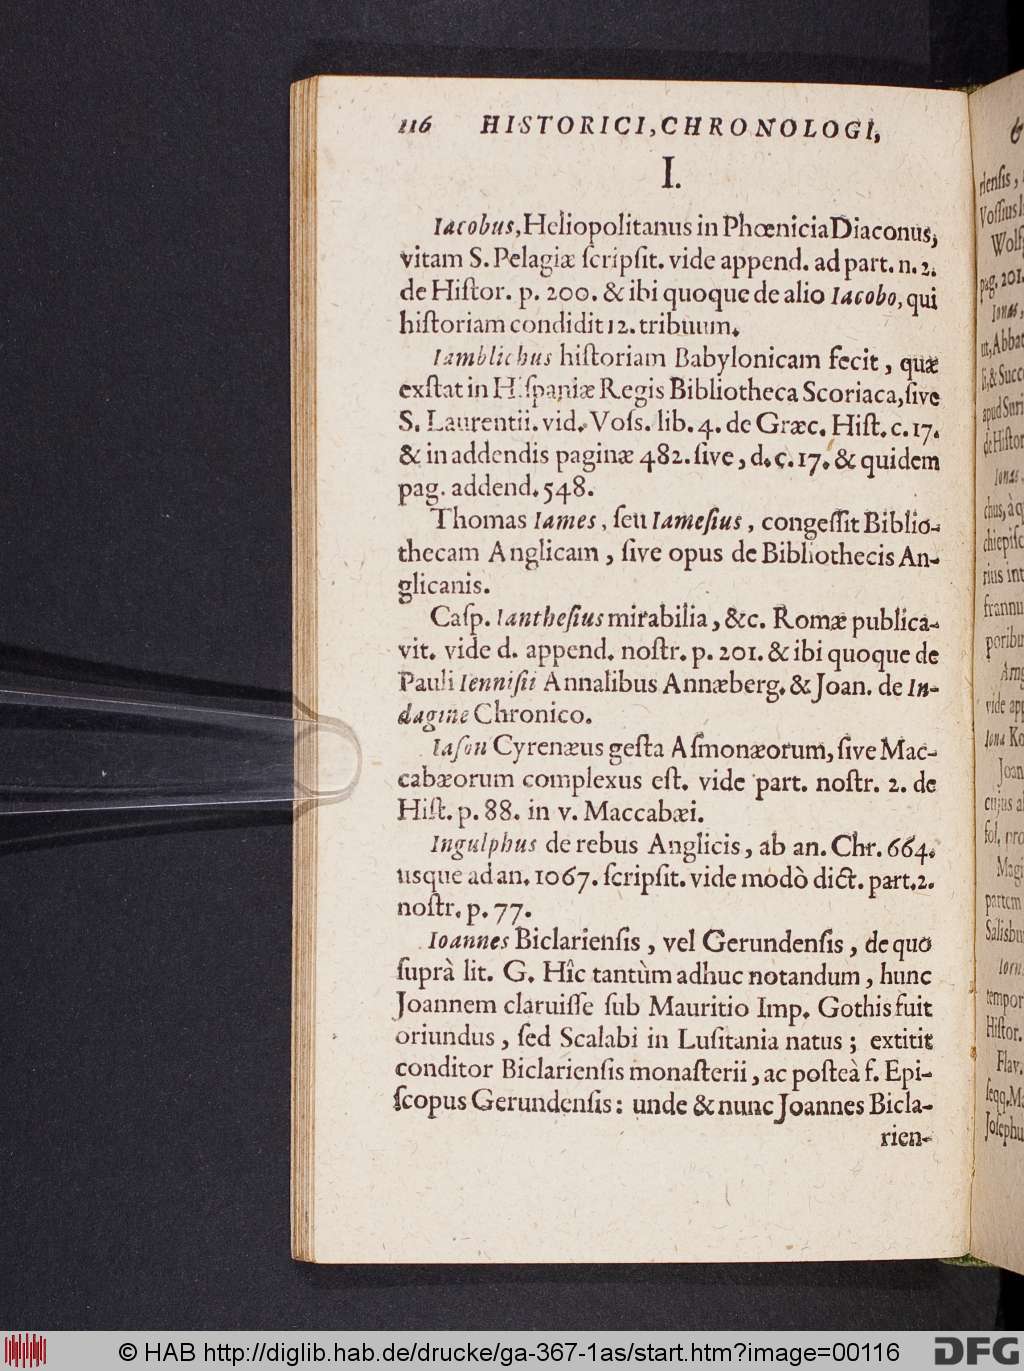 116 HISTORICI, CHRONOLOGI,
I.
Iacobus, Heliopolitanus in Phœnicia Diaconus,
vitam S. Pelagiæ ſcripſit. vide append. ad part. n. 2.
de Hiſtor. p. 200. & ibi quoque de alio Iacobo, qui
hiſtoriam condidit 12. tribuum.
Iamblichus hiſtoriam Babylonicam fecit, quæ
exſtat in Hiſpaniæ Regis Bibliotheca Scoriaca, ſive
S. Laurentii. vid. Voſs. lib. 4. de Græc. Hiſt. c. 17.
& in addendis paginæ 482. ſive, d. c. 17. & quidem
pag. addend. 548.
Thomas Iames, ſeu Iameſius, congeſſit Biblio-
thecam Anglicam, ſive opus de Bibliothecis An-
glicanis.
Caſp. Iantheſius mirabilia, &c. Romæ publica-
vit. vide d. append. noſtr. p. 201. & ibi quoque de
Pauli Ienniſii Annalibus Annæberg. & Joan. de In-
dagine Chronico.
Iaſon Cyrenæus geſta Aſmonæorum, ſive Mac-
cabæorum complexus eſt. vide part. noſtr. 2. de
Hiſt. p. 88. in v. Maccabæi.
Ingulphus de rebus Anglicis, ab an. Chr. 664.
usque ad an. 1067. ſcripſit. vide modò dict. part. 2.
noſtr. p. 77.
Ioannes Biclarienſis, vel Gerundenſis, de quo
ſuprà lit. G. Hîc tantùm adhuc notandum, hunc
Joannem claruiſſe ſub Mauritio Imp. Gothis fuit
oriundus, ſed Scalabi in Luſitania natus; extitit
conditor Biclarienſis monaſterii, ac poſteà f. Epi-
ſcopus Gerundenſis: unde & nunc Joannes Bicla-
rien-
&
rienſis,
Voſſius
Wolf
pag. 201.
Ionas,
ut, Abbat
& Succ
apud Suri
de Hiſtor
Ionas
chus, à q
chiepiſc
rius int
frannu
poribu
vide app
Iona Ko
Joan
cujus a
fol.
Magi
partem
Salisbu
tempor
Hiſtor.
Flav.
ſeqq. M
Joſephu
© HAB http://diglib.hab.de/drucke/ga-367-1as/start.htm?image=00116
DFG